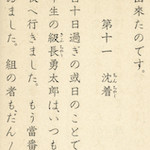 出来たのです。
第十一 沈着
百十日過ぎの或日のことで
年生の級長勇太郎は、いつも
校へ行きました。もう當番
めました。組の者も、だん〳〵